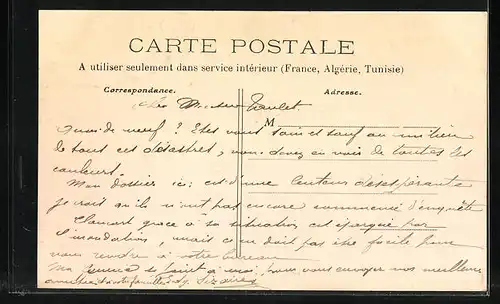 CARTE POSTALE
A utiliser seulement dans service intérieur (France, Algérie, Tunisie)
Correspondance. Adresse.
Cher Monsieur
M
Quoi de neuf ? Etes vous sain et sauf au milieu
de tout ces désastres, vous devez en voir de toutes les
couleurs.
Mon dossier ici est d'une lenteur désespérante
je crois qu'ils n'ont pas encore commencé d'enquête
Clamart grace à sa situation est épargné par
l'inondation, mais ce doit pas être facile pour
vous rendre à votre bureau
Ma se joint à moi pour vous envoyer nos meilleures